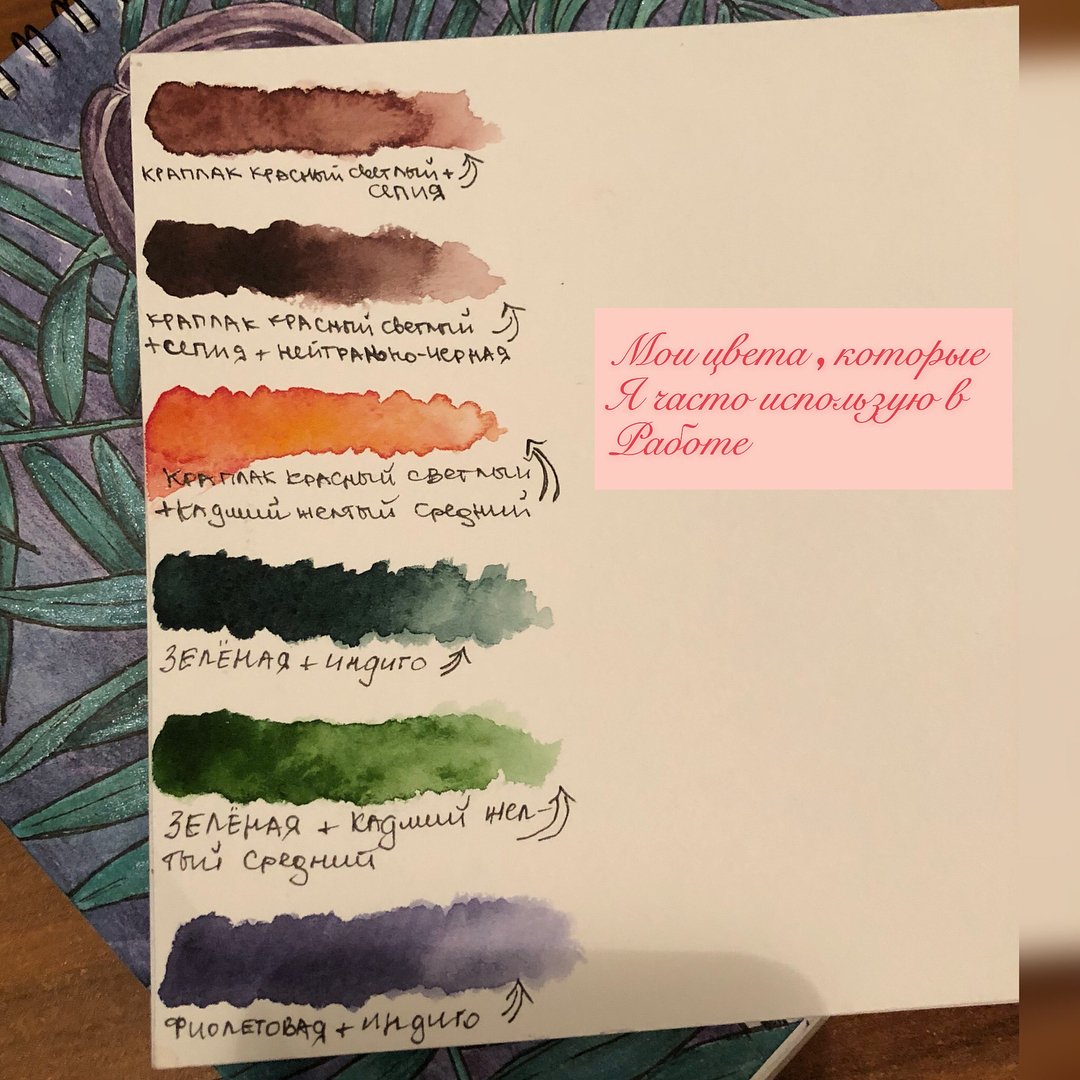 КРАПЛАК КРАСНЫЙ СВЕТЛЫЙ +
СЕПИЯ
КРАПЛАК КРАСНЫЙ СВЕТЛЫЙ
+ СЕПИЯ + НЕЙТРАЛЬНО-ЧЕРНАЯ
КРАПЛАК КРАСНЫЙ СВЕТЛЫЙ
+ КАДМИЙ ЖЕЛТЫЙ СРЕДНИЙ
ЗЕЛЁНАЯ + ИНДИГО
ЗЕЛЁНАЯ + КАДМИЙ ЖЕЛ-
ТЫЙ СРЕДНИЙ
ФИОЛЕТОВАЯ + ИНДИГО
Мои цвета , которые
Я часто использую в
Работе